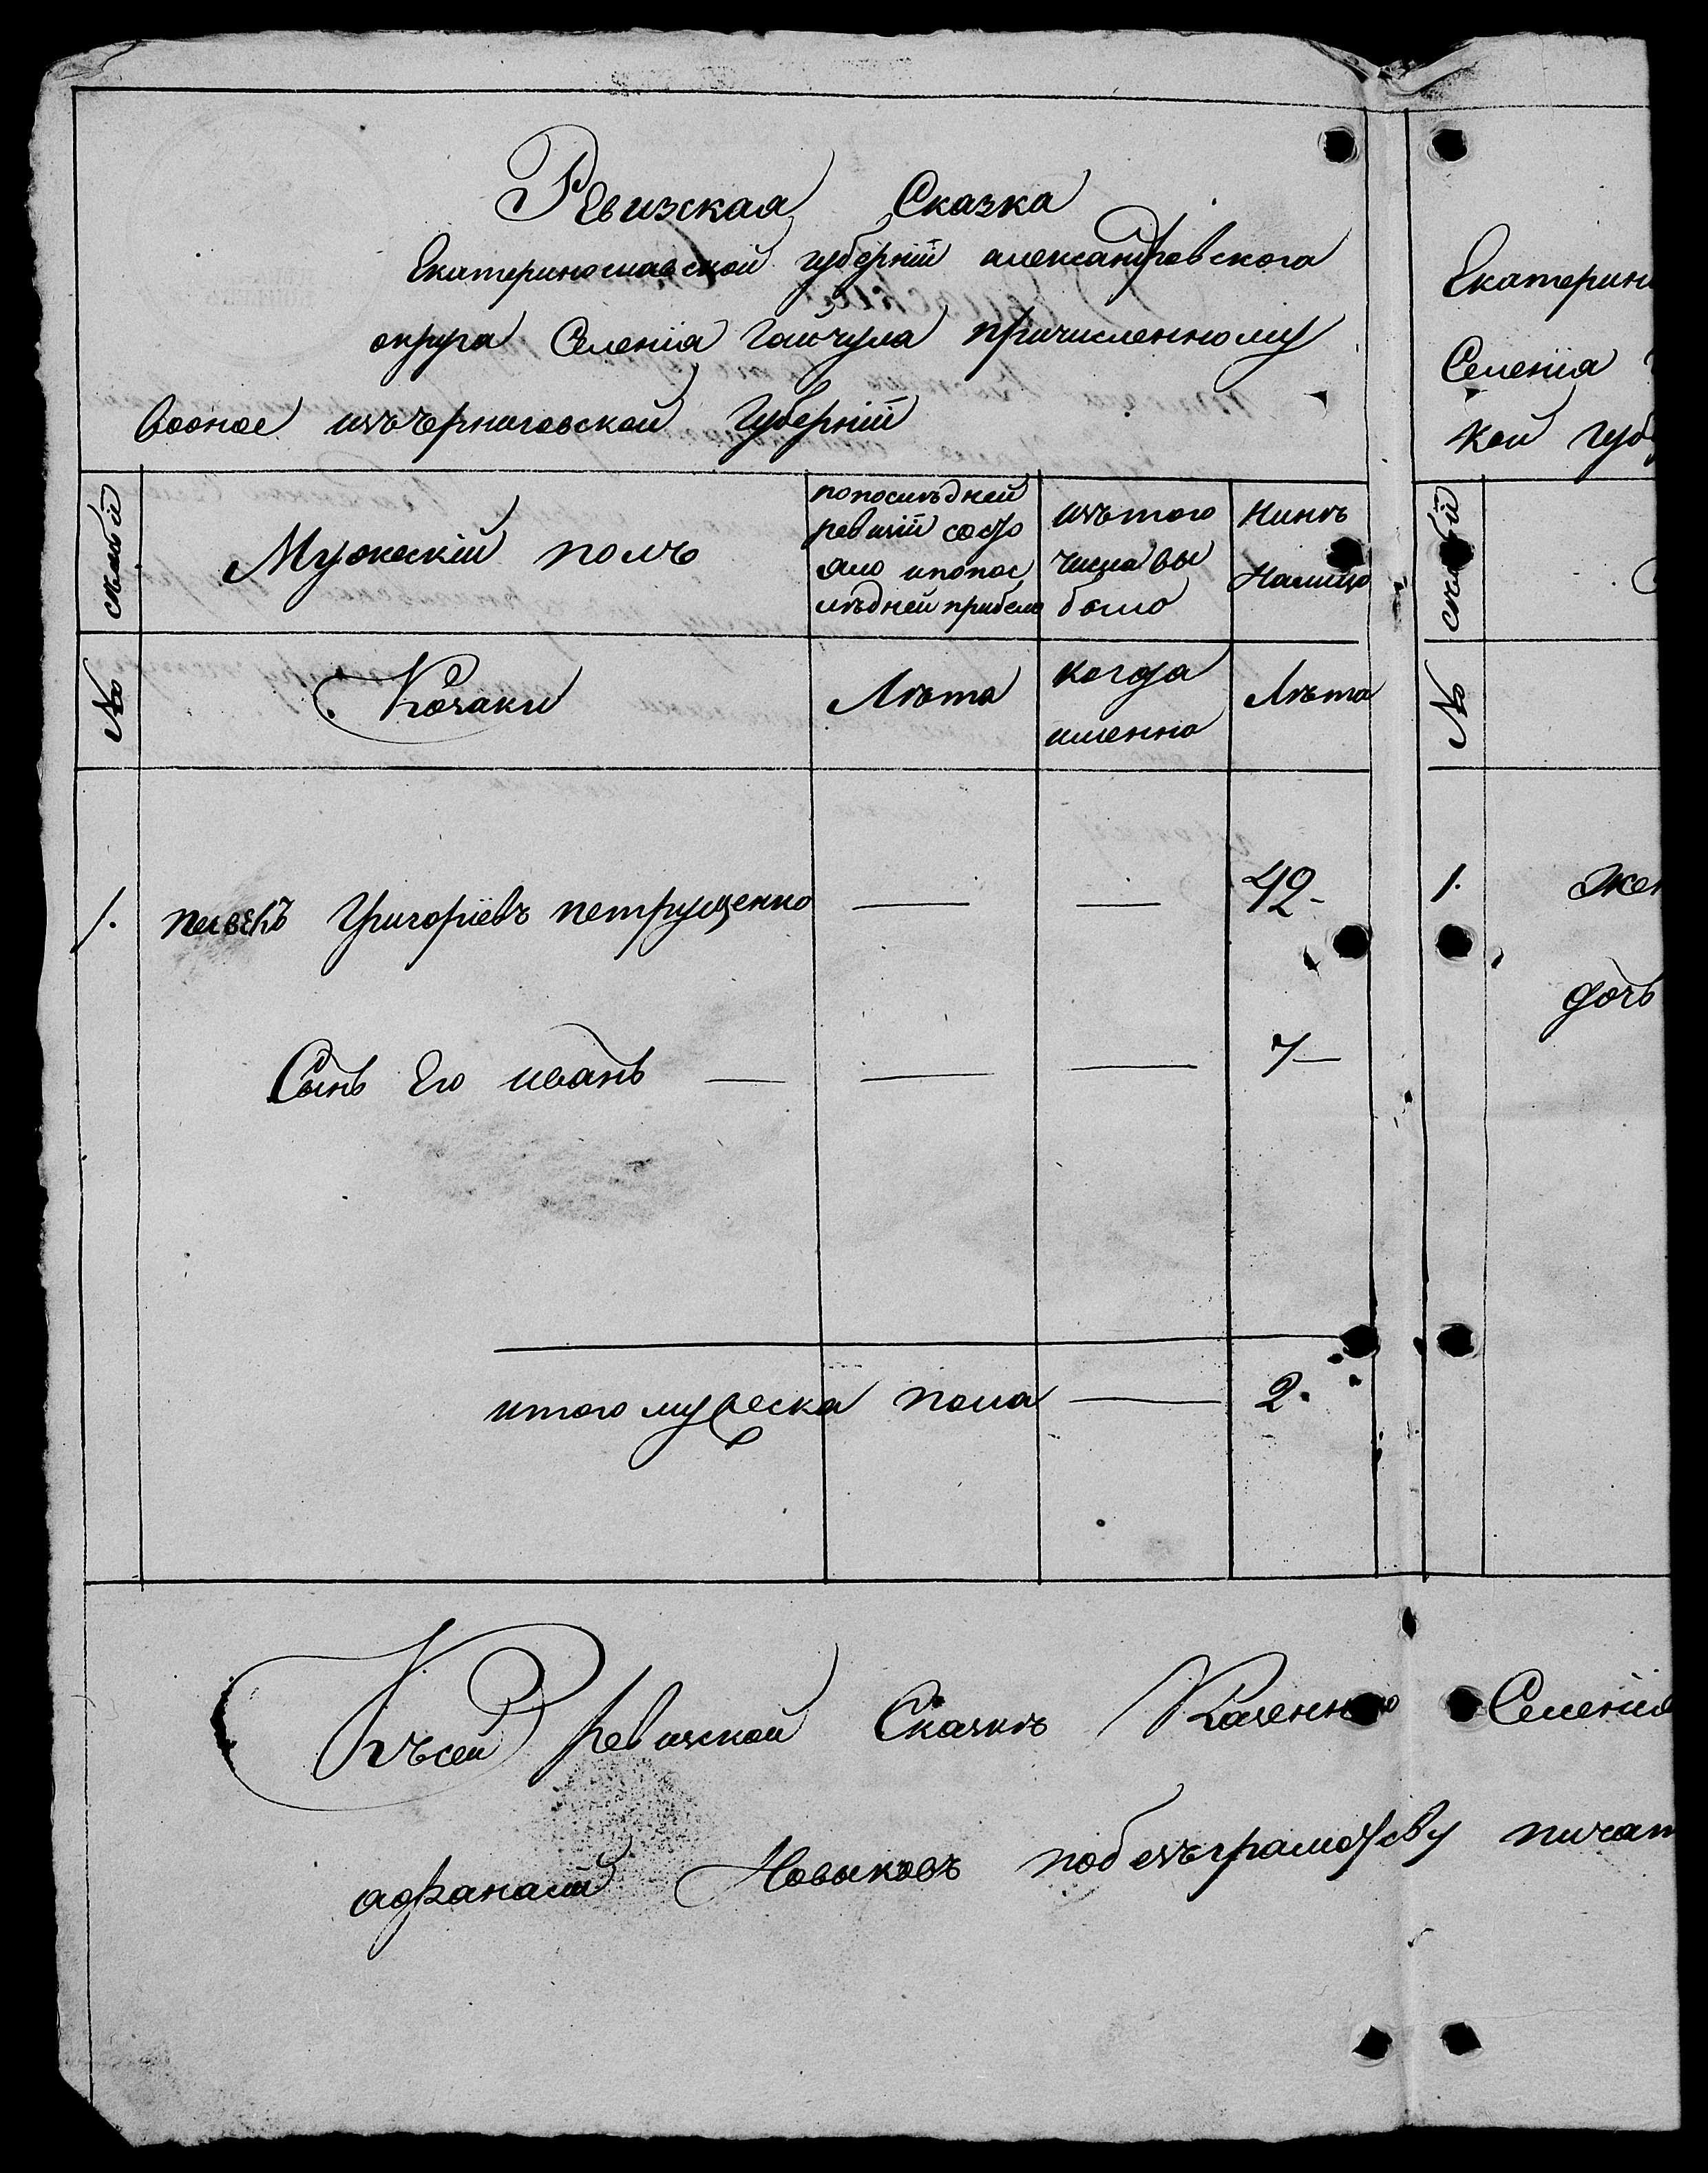 Ревизская Сказка
Екатеринославской губернїй александровскога
округа Селенїя Гайчула причисленному
вооное изъчерниговской Губернїй
№ семьи
Мужескїй полъ
попослѣдней
ревизїй состо
яло ипопос
лѣдней прибело
изътого
числа вы
было
Нинѣ
Налицо
Козаки
Лѣта
когда
именно
Лѣта
1. Григорїевъ петрущенко — — 42-
Сынъ Его иванъ — — — 7—
итого мужеска пола — 2.
Късей ревизской Сказкѣ Селенїя
афанасий Новыковъ побезъграмотству
Екатерин
Селенїя
кой губ
№
1. жен
дочь